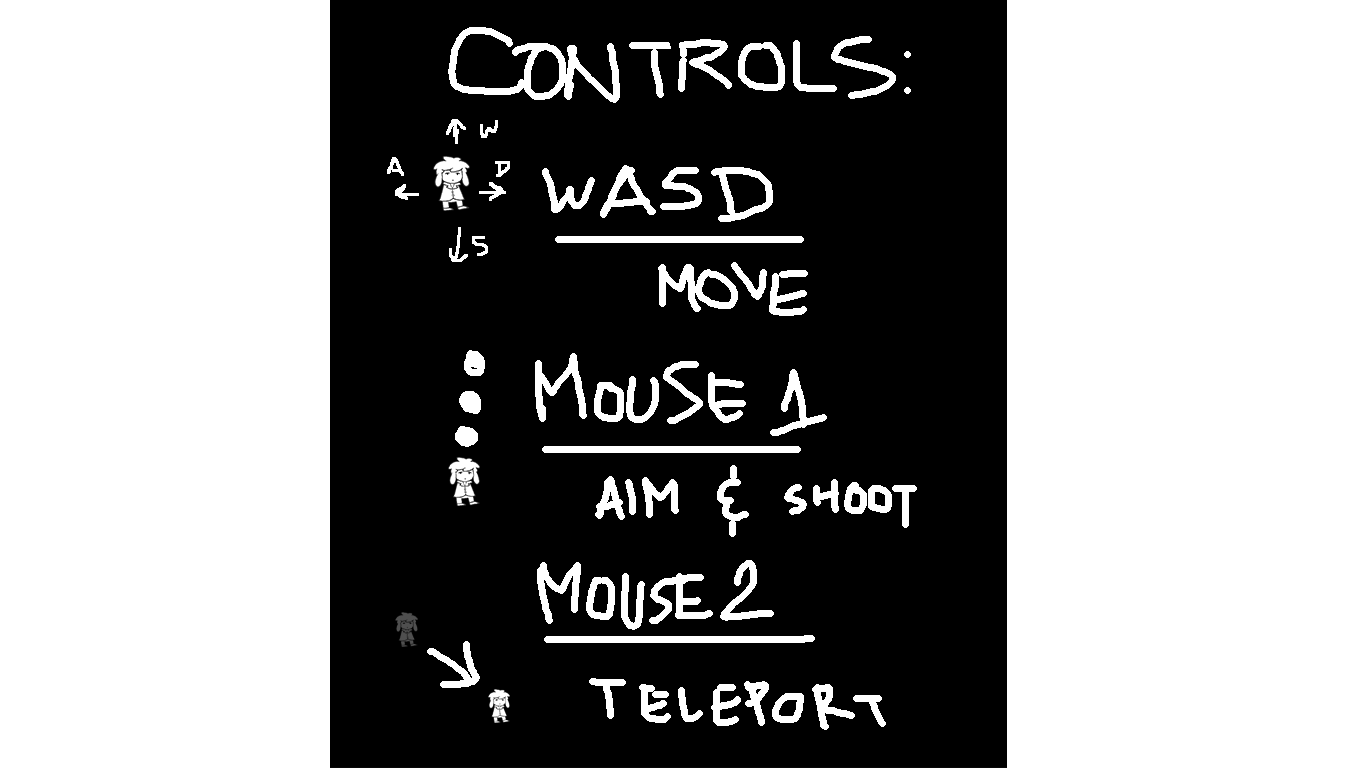 CONTROLS:
W
A
D
S
WASD
MOVE
MOUSE 1
AIM & SHOOT
MOUSE 2
TELEPORT